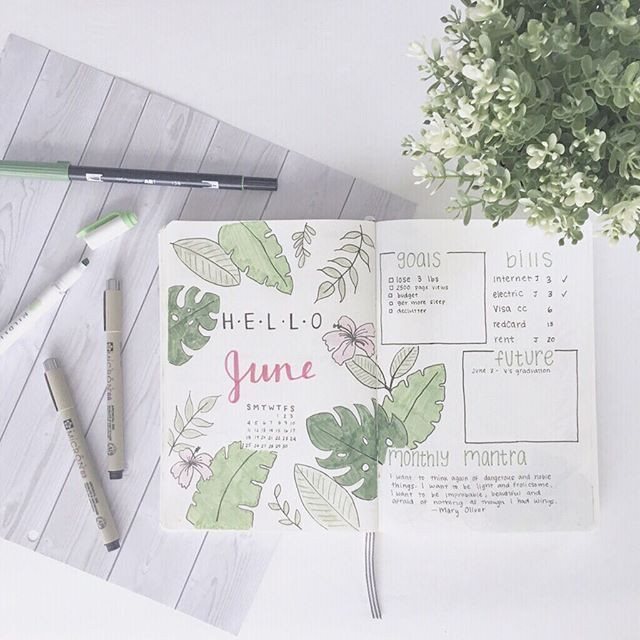 H·E·L·L·O
June
S M T W T F S
1 2 3
4 5 6 7 8 9 10
11 12 13 14 15 16 17
18 19 20 21 22 23 24
25 26 27 28 29 30
goals
lose 3 lbs
2500 page views
budget
get more sleep
declutter
bills
internet J 3 ✓
electric J 3 ✓
Visa CC 6
redcard 13
rent J 20
future
June 2 - V's graduation
monthly mantra
I want to think again of dangerous and noble
things. I want to be light and frolicsome,
I want to be improbable, beautiful and
afraid of nothing as though I had wings.
- Mary Oliver